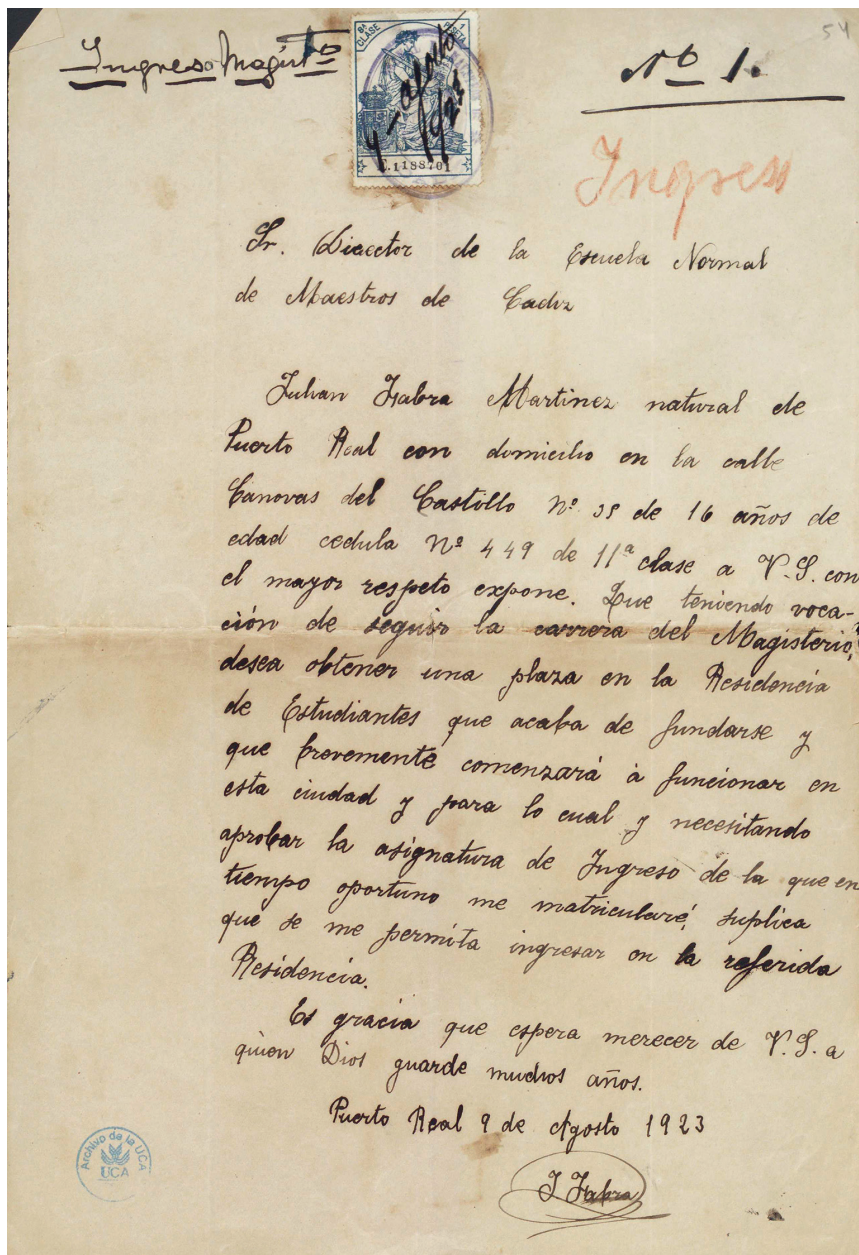 54
Ingreso Magist.º
Nº 1.
8ª CLASE
1 PESETA
9 - agosto
1923
C.1188701
Ingreso
Sr. Director de la Escuela Normal
de Maestros de Cadiz
Julian Fabra Martinez natural de
Puerto Real con domicilio en la calle
Canovas del Castillo Nº 35 de 16 años de
edad cedula Nº 449 de 11ª clase a V.S. con
el mayor respeto expone. Que teniendo voca-
ción de seguir la carrera del Magisterio,
desea obtener una plaza en la Residencia
de Estudiantes que acaba de fundarse y
que brevemente comenzará á funcionar en
esta ciudad y para lo cual y necesitando
aprobar la asignatura de Ingreso de la que en
tiempo oportuno me matricularé, suplica
que se me permita ingresar en la referida
Residencia.
Es gracia que espera merecer de V.S. a
quien Dios guarde muchos años.
Puerto Real 9 de Agosto 1923
J Fabra
Archivo de la UCA
UCA